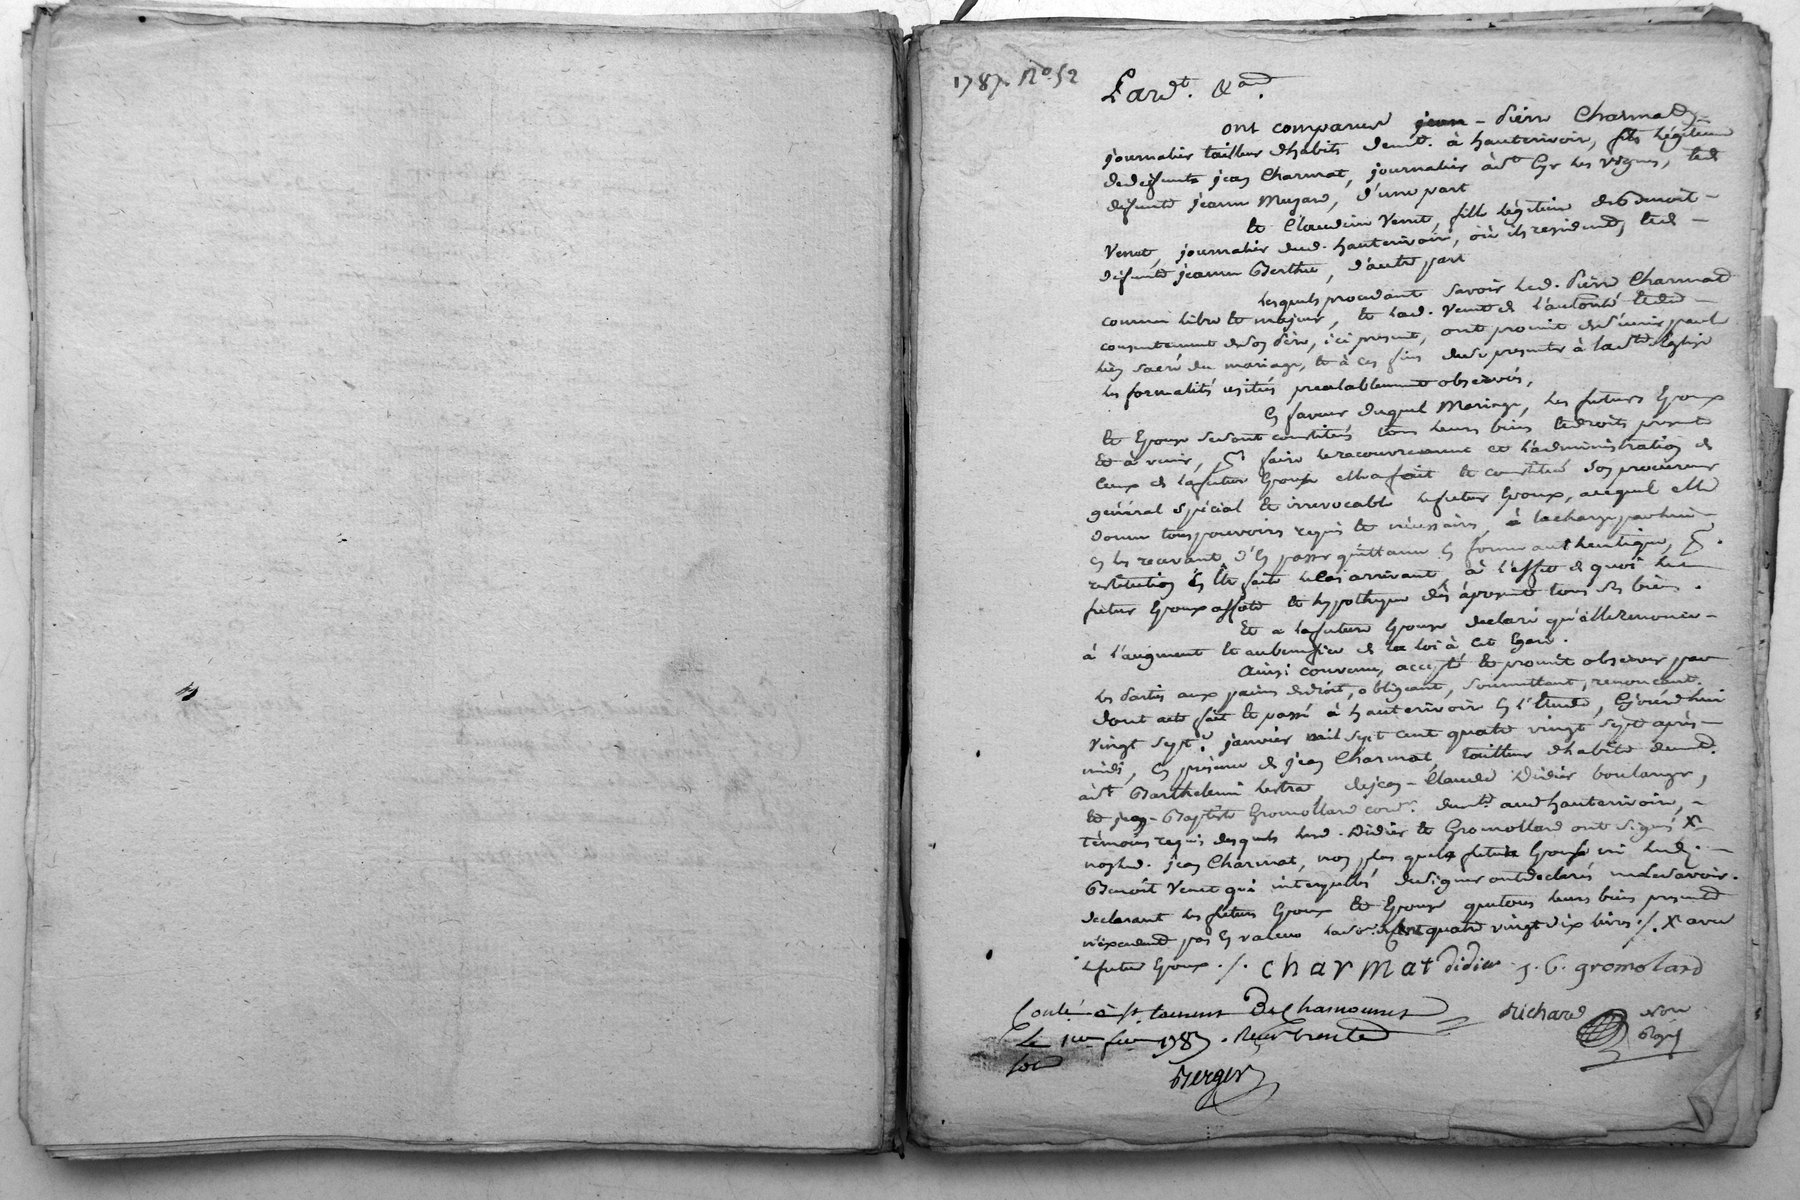 1787. No. 52
Pardt. &a.
ont comparus jean - Pierre Charmat,
journalier tailleur d'habits demt. à hauterivoir, fils légitime
de défunts jean Charmat, journalier à St Cyr les vignes, et de
défunte jeanne Muzard, d'une part
Et Claudine Venet, fille légitime de Benoit -
Venet, journalier dud. hauterivoir, où ils resident, et de -
défunte jeanne Berthe, d'autre part
Lesquels procedant savoir led. Pierre Charmat
comme libre et majeur, et lad. Venet de l'autorité et du -
consentement de son père, ici present, ont promit de s'unir par le
lien sacré du mariage, et à ces fins de se presenter à la Ste Eglise
les formalités usitées prealablement observés,
En faveur duquel Mariage, les futurs Epoux
et Epouse se sont constitués tous leurs biens et droits presents
et à venir, pr. faire le recouvrement et l'administration de
Ceux de la future Epouse elle a fait et constitué son procureur
général spécial et irrevocable le futur Epoux, auquel elle
donne tous pouvoirs requis et nécessaires, à la charge par lui -
en les recevant d'en passer quittance en forme authentique, pr.
restitution en être faite le cas arrivant, à l'effet de quoi led.
futur Epoux affecte et hypotheque dès à present tous ses biens.
Et a la future Epouse declaré qu'elle renonce -
à l'augment et au benefice de la loi à cet Egard.
Ainsi convenu, accepté et promit observer par
les Parties aux peines de droit, obligeant, soumettant, renonceant.
dont acte fait et passé à hauterivoir en l'Etude, Ejourd'hui
vingt sept. janvier mil sept cent quatre vingt sept après -
midi, en présence de jean Charmat, tailleur d'habits demt.
à St Barthelemi Lestra, de jean - Claude Didier boulanger,
et jean - Baptiste Gromollard cordr. demts. aud. hauterivoir, -
témoins requis desquels lesd. Didier et Gromollard ont signés X
non led. jean Charmat, non plus que la future Epouse ni led. -
Benoit Venet qui interpellés de signer ont declarés ne le savoir.
declarant les futurs Epoux et Epouse que tous leurs biens presents
n'excedent pas en valeur la so. de Cent quatre vingt dix livres ./. X avec
le futur Epoux ./. Charmat didier j. B. gromolard
Conté à St. Laurent De Chamousset Richard
Le 1er fer. 1787. Reçu trente
sols
Berger